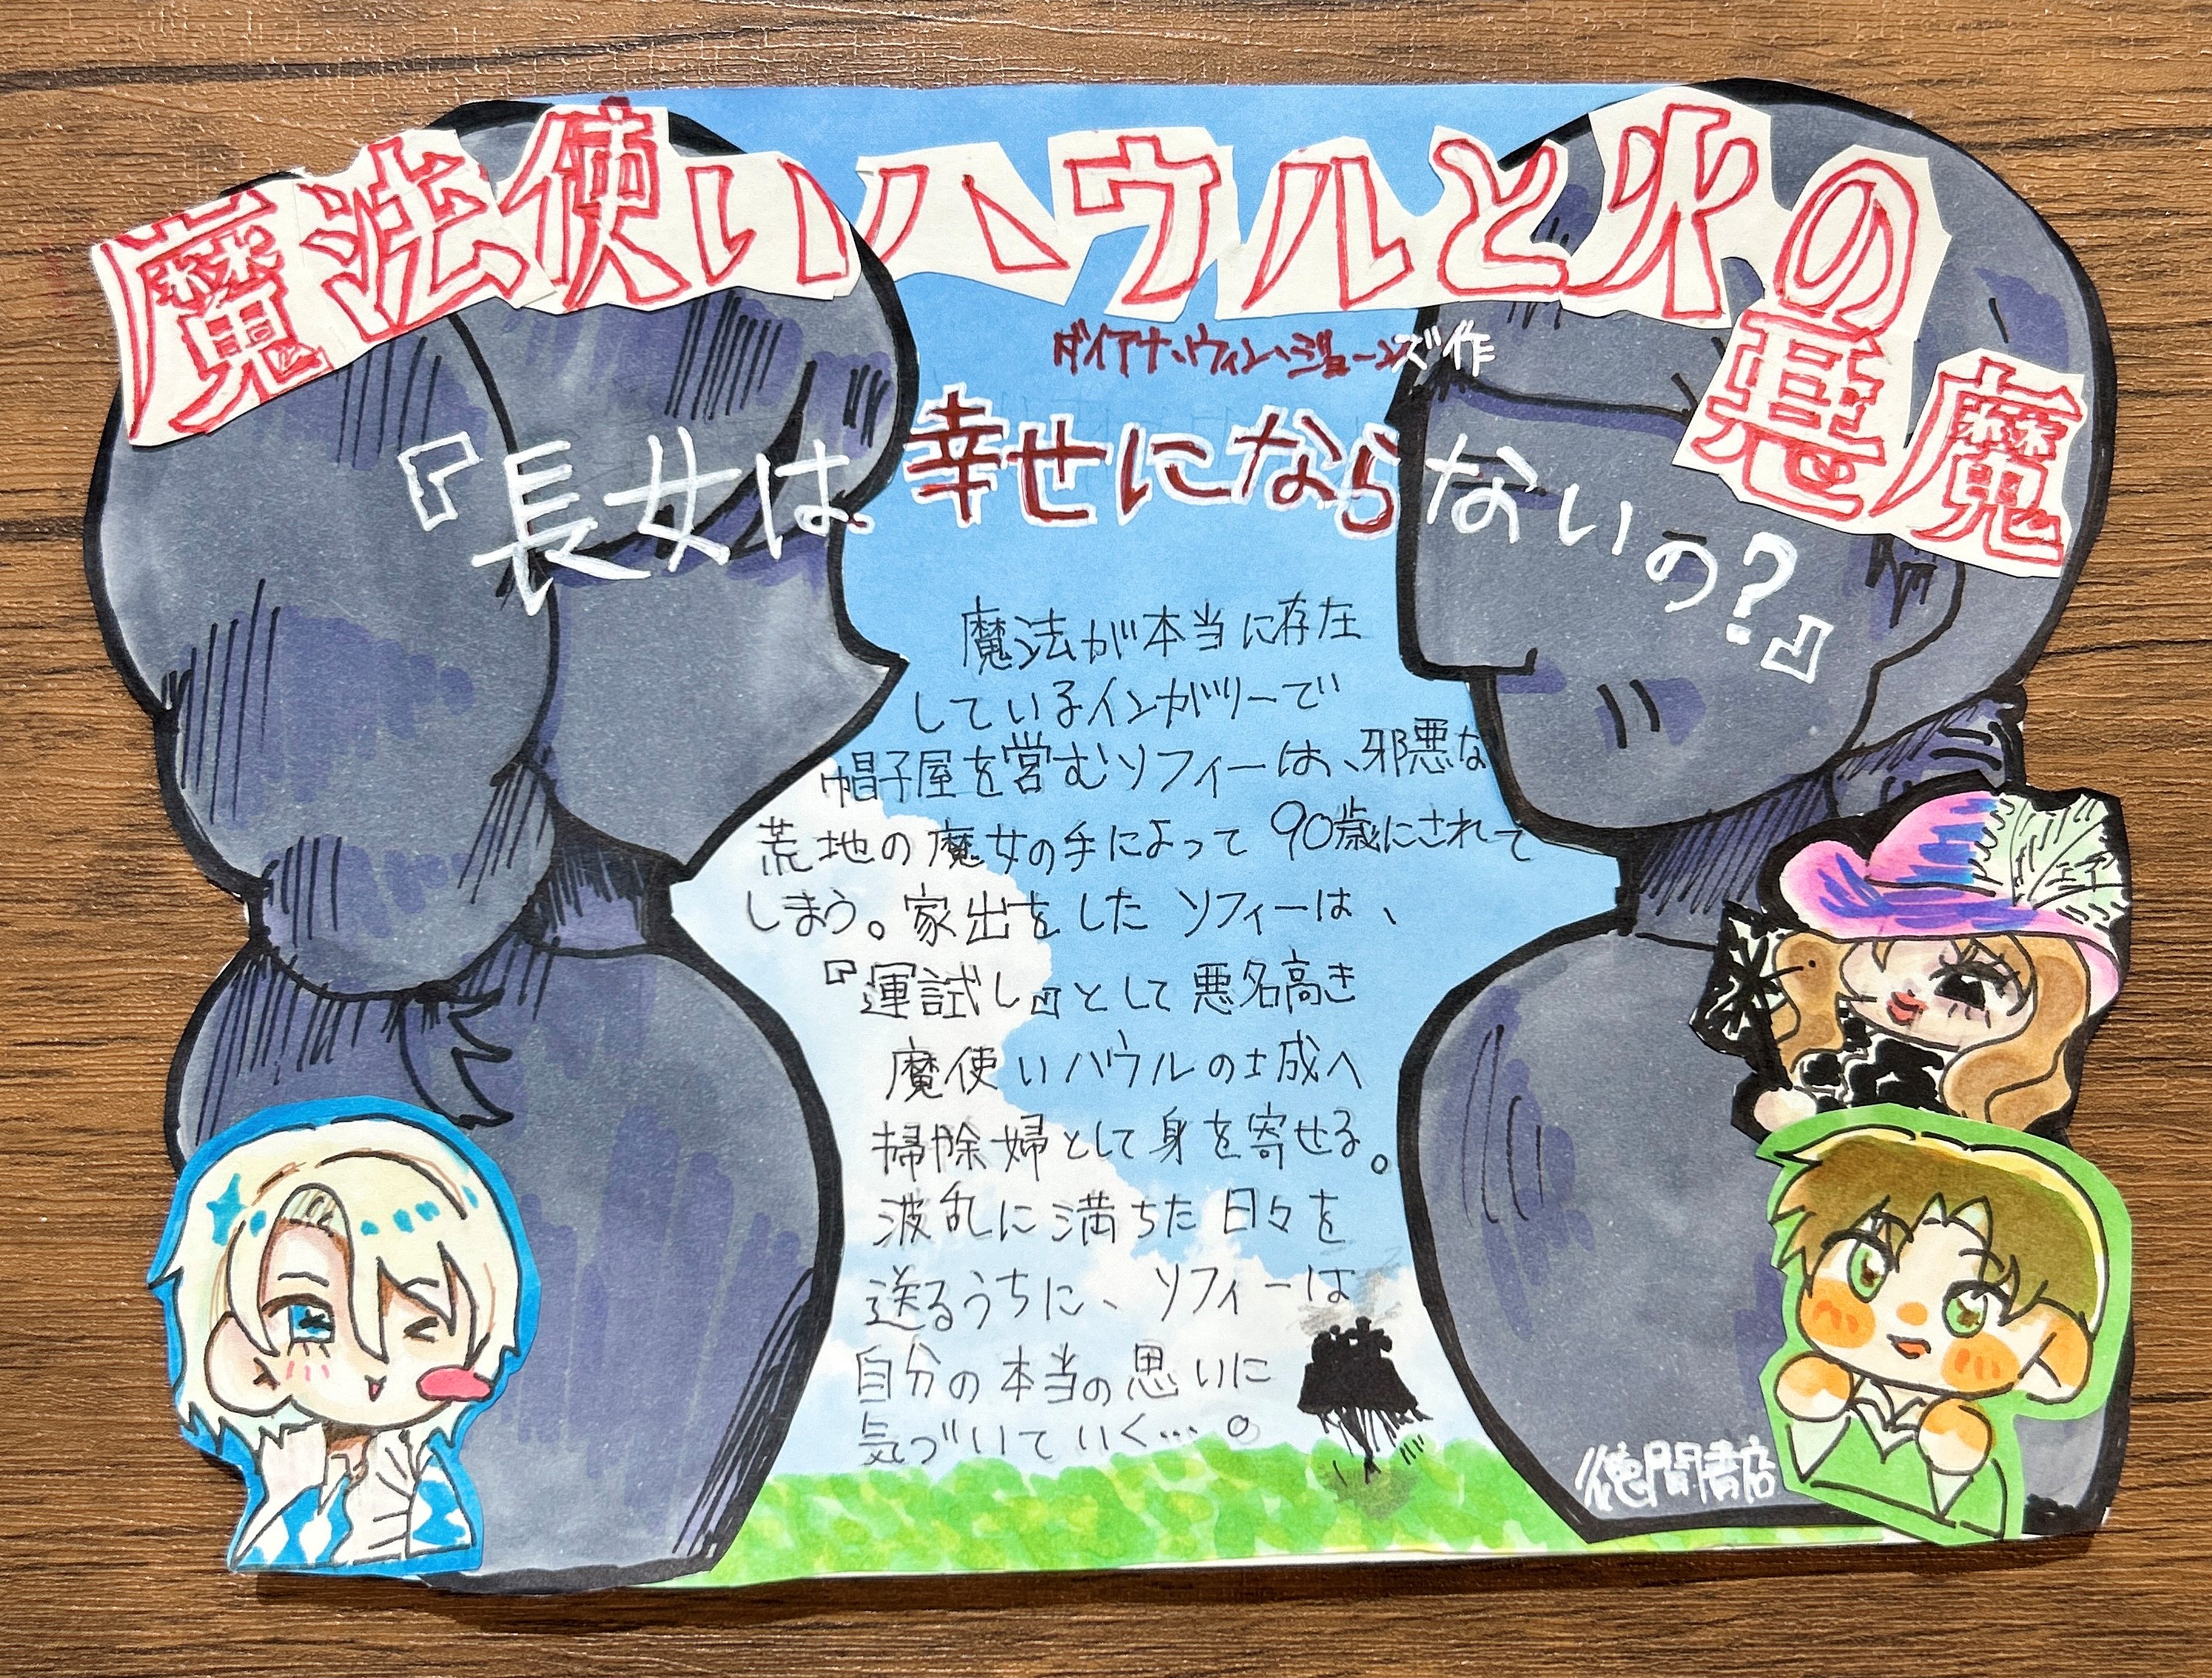 魔法使いハウルと火の悪魔
ダイアナ・ウィン・ジョーンズ作
『長女は幸せにならないの?』
魔法が本当に存在
しているインガリーで
帽子屋を営むソフィーは、邪悪な
荒地の魔女の手によって90歳にされて
しまう。家出をしたソフィーは、
『運試し』として悪名高き
魔使いハウルの城へ
掃除婦として身を寄せる。
波乱に満ちた日々を
送るうちに、ソフィーは
自分の本当の思いに
気づいていく…。
徳間書店